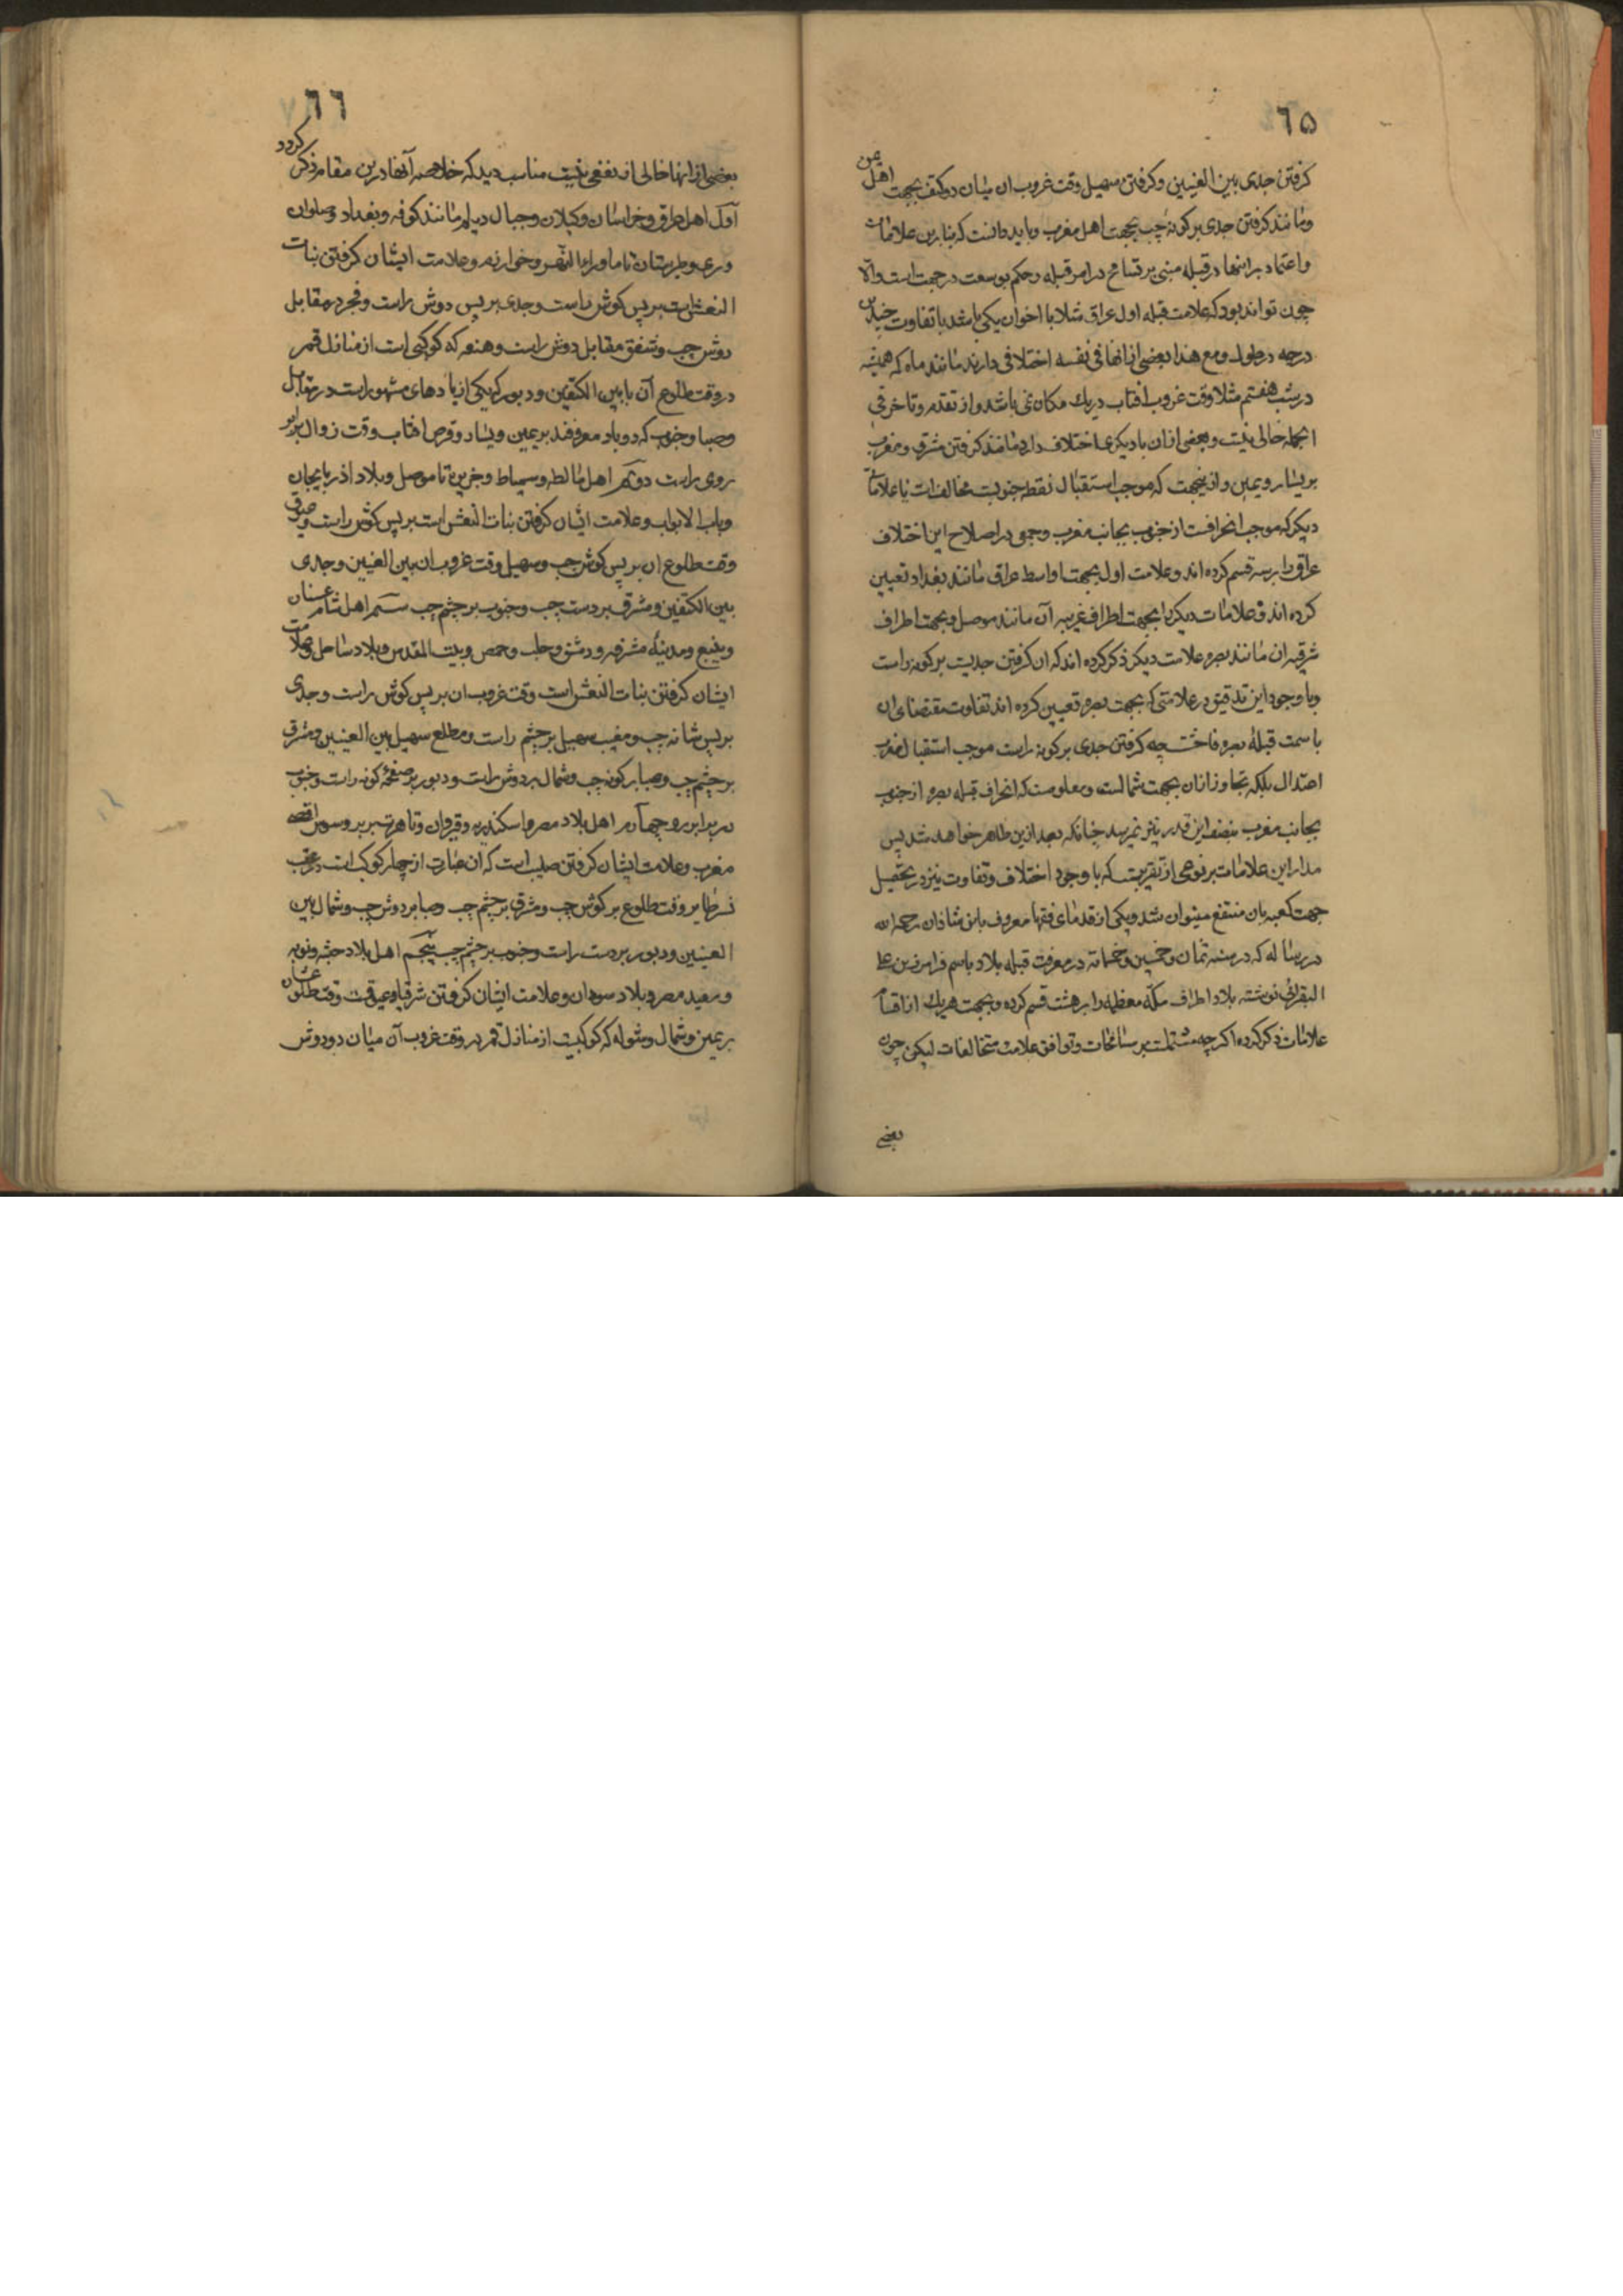 ٦٥
گرفتن جدی بین العینین و گرفتن سهیل وقت غروب ان میان دو کتف بجهت اهل یمن
و مانند گرفتن جدی بر گونهٔ چپ بجهت اهل مغرب و باید دانست که بنا برین علامات
و اعتماد بر اینها در قبله مبنی بر تسامح در امر قبله و حکم بوسعت در جهت است و الا
چون تواند بود که علامت قبله اول عراق مثلا با اخوان یکی باشد با تفاوت چندین
درجه در طول و مع هذا بعضی از انها فی نفسه اختلافی دارند مانند ماه که همیشه
در شب هفتم مثلا وقت غروب افتاب در یك مکان نمی باشد و از تقدم و تاخر فی
الجمله خالی نیست و بعضی از ان با دیکری اختلاف دارد مانند گرفتن مشرق و مغرب
بر یسار و یمین و از ینجهت که موجب استقبال نقطه جنوبست مخالف است با علاماتی
دیکر که موجب انحرافست از جنوب بجانب مغرب و جمعی در اصلاح این اختلاف
عراق را بر سه قسم کرده اند و علامت اول بجهت اواسط عراق مانند بغداد تعیین
کرده اند و علامات دیکر را بجهت اطراف غربیه آن مانند موصل و بجهت اطراف
شرقیه ان مانند بصره علامت دیکر ذکر کرده اند که ان گرفتن جدیست بر گونه راست
و با وجود این تدقیق در علامتی که بجهت بصره تعیین کرده اند تفاوت مقتضای ان
با سمت قبلهٔ بصره فاحش چه گرفتن جدی بر گونه راست موجب استقبال مغرب
اعتدال بلکه تجاوز از ان بجهت شمالست و معلومست که انحراف قبله بصره از جنوب
بجانب مغرب بنصف این قدر نیز نمیرسد چنانکه بعد ازین ظاهر خواهد شد پس
مدار این علامات بر نوعی از تقریبست که با وجود اختلاف و تفاوت نیز در تحصیل
جهت کعبه بان منتفع میتوان شد و یکی از قدمای فقها معروف بابن شاذان رحمه الله
در رساله که در سنه ثمان و خمسین و خمسمائه در معرفت قبله بلاد باسم فرامرز بن علی
البقرانی نوشته بلاد اطراف مکّه معظمه را بر هشت قسم کرده و بجهت هریك از اقسام
علامات ذکر کرده اکر چه مشتملست بر مسامحات و توافق علامت متخالفات لیکن چون
بعضی
٦٦
بعضی از انها خالی از نفعی نیست مناسب دید که خلاصه آنها درین مقام ذکر کردد
اوّل اهل عراق و خراسان و کیلان و جبال دیلم مانند کوفه و بغداد و حلوان
و ری و طبرستان تا ما وراء النّهر و خوارزم و علامت ایشان گرفتن بنات
النعش است بر پس گوش راست و جدی بر پس دوش راست و فجر در مقابل
دوش چپ و شفق مقابل دوش راست و هنعه که کوکبی است از منازل قمر
در وقت طلوع آن ما بین الکتفین و دبور که یکی از بادهای مشهور است در مقابل
و صبا و جنوب که دو باد معروفند بر یمین و یسار و قرص افتاب وقت زوال برابر
روی راست دوّم اهل مالطه و سمیساط و جزیره تا موصل و بلاد اذربایجان
و باب الابواب و علامت ایشان گرفتن بنات النعش است بر پس گوش راست و عیوق
وقت طلوع ان بر پس گوش چپ و سهیل وقت غروب ان بین العینین و جدی
بین الکتفین و مشرق بر دست چپ و جنوب بر چشم چپ سیّم اهل شام عسفان
و ینبع و مدینهٔ مشرفه و دمشق و حلب و حمص و بیت المقدس و بلاد ساحل و علامت
ایشان گرفتن بنات النعش است وقت غروب ان بر پس گوش راست و جدی
بر پس شانه چپ و مغیب سهیل بر چشم راست و مطلع سهیل بین العینین و مشرق
بر چشم چپ و صبا بر گونه چپ و شمال بر دوش راست و دبور بر صفحهٔ گونه راست و جنوب
در برابر رو چهارم اهل بلاد مصر و اسکندریه و قیروان و تاهرت و بربر و سوس اقصی
مغرب و علامت ایشان گرفتن صلیب است که آن عبارت از چهار کوکب است در عقب
نسر طایر وقت طلوع بر گوش چپ و مشرق بر چشم چپ و صبا بر دوش چپ و شمال بین
العینین و دبور بر دست راست و جنوب بر چشم چپ پنجم اهل بلاد حبشه و نوبه
و صعید مصر و بلاد سودان و علامت ایشان گرفتن ثریا و عیوقست وقت طلوعشان
بر یمین و شمال و شوله که کوکبیست از منازل قمر در وقت غروب آن میان دو دوش